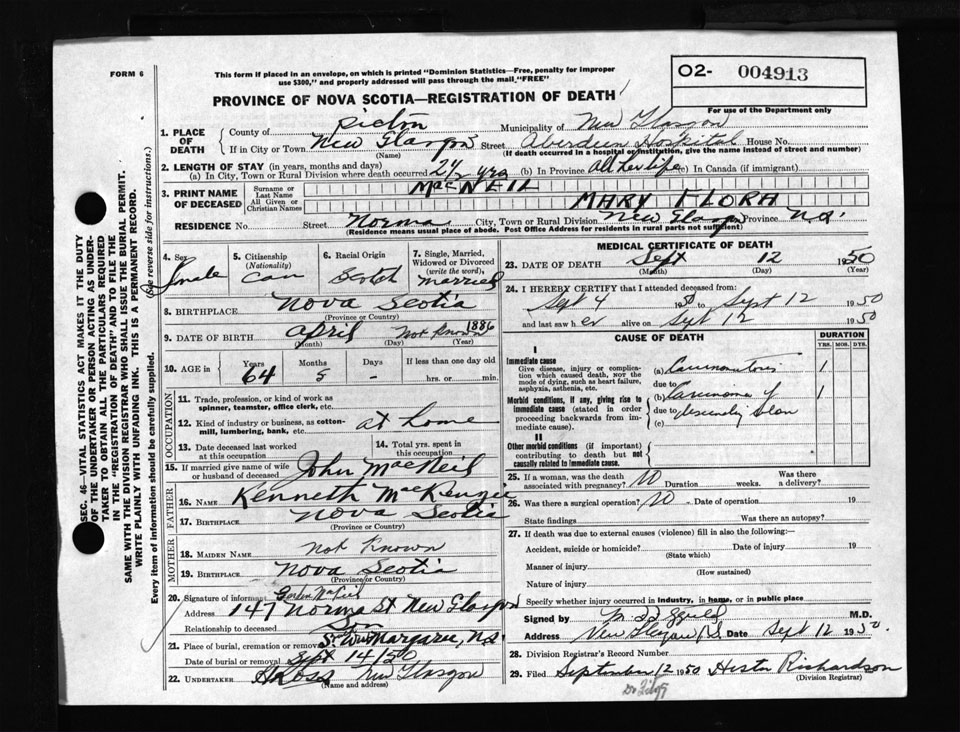 FORM 6
This form if placed in an envelope, on which is printed "Dominion Statistics—Free, penalty for improper
use $300," and properly addressed will pass through the mail "FREE"
O2- 004913
PROVINCE OF NOVA SCOTIA—REGISTRATION OF DEATH
For use of the Department only
1. PLACE OF DEATH { County of Pictou Municipality of New Glasgow
If in City or Town New Glasgow Street Aberdeen Hospital House No.
(Name) (If death occurred in a hospital or institution, give the name instead of street and number)
2. LENGTH OF STAY (in years, months and days)
(a) In City, Town or Rural Division where death occurred 2½ yrs (b) In Province All her life (c) In Canada (if immigrant)
3. PRINT NAME OF DECEASED { Surname or Last Name MacNEIL
All Given or Christian Names MARY FLORA
RESIDENCE No. Street Norma City, Town or Rural Division New Glasgow Province N.S.
(Residence means usual place of abode. Post Office Address for residents in rural parts not sufficient)
4. Sex Female
5. Citizenship (Nationality) Can
6. Racial Origin Scotch
7. Single, Married, Widowed or Divorced (write the word), married
8. BIRTHPLACE Nova Scotia
(Province or Country)
9. DATE OF BIRTH April Not Known 1886
(Month) (Day) (Year)
10. AGE in { Years 64 Months 5 Days - If less than one day old
hrs. or min.
OCCUPATION
11. Trade, profession, or kind of work as
spinner, teamster, office clerk, etc.
12. Kind of industry or business, as cotton-
mill, lumbering, bank, etc. at home
13. Date deceased last worked
at this occupation
14. Total yrs. spent in
this occupation
15. If married give name of wife
or husband of deceased John MacNeil
FATHER
16. NAME Kenneth MacKenzie
17. BIRTHPLACE Nova Scotia
(Province or Country)
MOTHER
18. MAIDEN NAME Not Known
19. BIRTHPLACE Nova Scotia
(Province or Country)
20. Signature of informant Gordon MacNeil
Address 147 Norma St New Glasgow
Relationship to deceased Son
21. Place of burial, cremation or removal Margaree, N.S.
Date of burial or removal Sept 14/50
22. UNDERTAKER New Glasgow
(Name and address)
MEDICAL CERTIFICATE OF DEATH
23. DATE OF DEATH Sept 12 1950
(Month) (Day) (Year)
24. I HEREBY CERTIFY that I attended deceased from:
Sept 4 1950 to Sept 12 1950
and last saw her alive on Sept 12 1950
CAUSE OF DEATH
DURATION
YRS. MOS. DYS.
I
Immediate cause
Give disease, injury or complica-
tion which caused death, NOT the
mode of dying, such as heart failure,
asphyxia, asthenia, etc.
(a) Carcinomatosis 1
due to
Morbid conditions, if any, giving rise to
immediate cause (stated in order
proceeding backwards from im-
mediate cause).
(b) Carcinoma of 1
due to descending colon
(c)
II
Other morbid conditions (if important)
contributing to death but not
causally related to immediate cause.
25. If a woman, was the death
associated with pregnancy? No Duration weeks. Was there
a delivery?
26. Was there a surgical operation? No - Date of operation 19
State findings Was there an autopsy?
27. If death was due to external causes (violence) fill in also the following:
Accident, suicide or homicide? Date of injury 19
(State which)
Manner of injury
(How sustained)
Nature of injury
Specify whether injury occurred in industry, in home, or in public place
Signed by M.D.
Address New Glasgow N.S. Date Sept 12 1950.
28. Division Registrar's Record Number
29. Filed September 12 1950 Hester Richardson
(Division Registrar)
SEC. 46—VITAL STATISTICS ACT MAKES IT THE DUTY
OF THE UNDERTAKER OR PERSON ACTING AS UNDER-
TAKER TO OBTAIN ALL THE PARTICULARS REQUIRED
IN THE "REGISTRATION OF DEATH" AND TO FILE THE
SAME WITH THE DIVISION REGISTRAR WHO SHALL ISSUE THE BURIAL PERMIT.
WRITE PLAINLY WITH UNFADING INK. THIS IS A PERMANENT RECORD.
Every item of information should be carefully supplied. (See reverse side for instructions.)